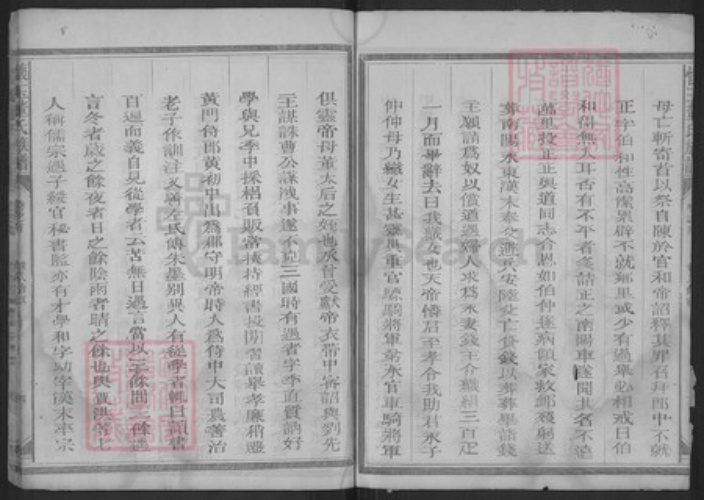 母亡斬寄首以祭自陳於官和帝詔釋其罪召拜郎中不就
正字伯和性高潔累辟不就鄉里或少有過舉必相戒曰伯
和得無入耳否有不平者多請正之南陽車遂聞其名不遠
萬里投正正與道同志合恩如伯仲遂病領家救卹殯躬送
葬南陽永東漢末奉父避兵安陸父亡貸錢以葬葬畢詣錢
主願請為奴以償道遇婦人求為永妻錢主令織縑三百疋
一月而畢辭去曰我織女也天帝憐君至孝令我助君永子
仲仲母乃織女生甚靈異重官驃騎將軍承官車騎將軍
俱靈帝母董太后之姪也承曾受獻帝衣帶中密詔與劉先
主謀誅曹公謀洩事遂不克三國時有遇者字季直質訥好
學與兄季中採梠負販常挾持經書投閒習讀舉孝廉稍遷
黃門侍郎黃初中出為郡守明帝時入為侍中大司農善治
老子作訓注又善左氏傳朱墨別異人有從學者輒曰讀書
百遍而義自見從學者云苦無日遇言當以三餘問三餘遇
言冬者歲之餘夜者日之餘陰雨者晴之餘也與賈洪等七
人稱儒宗遇子綏官秘書監亦有才學和字幼宰漢末率宗